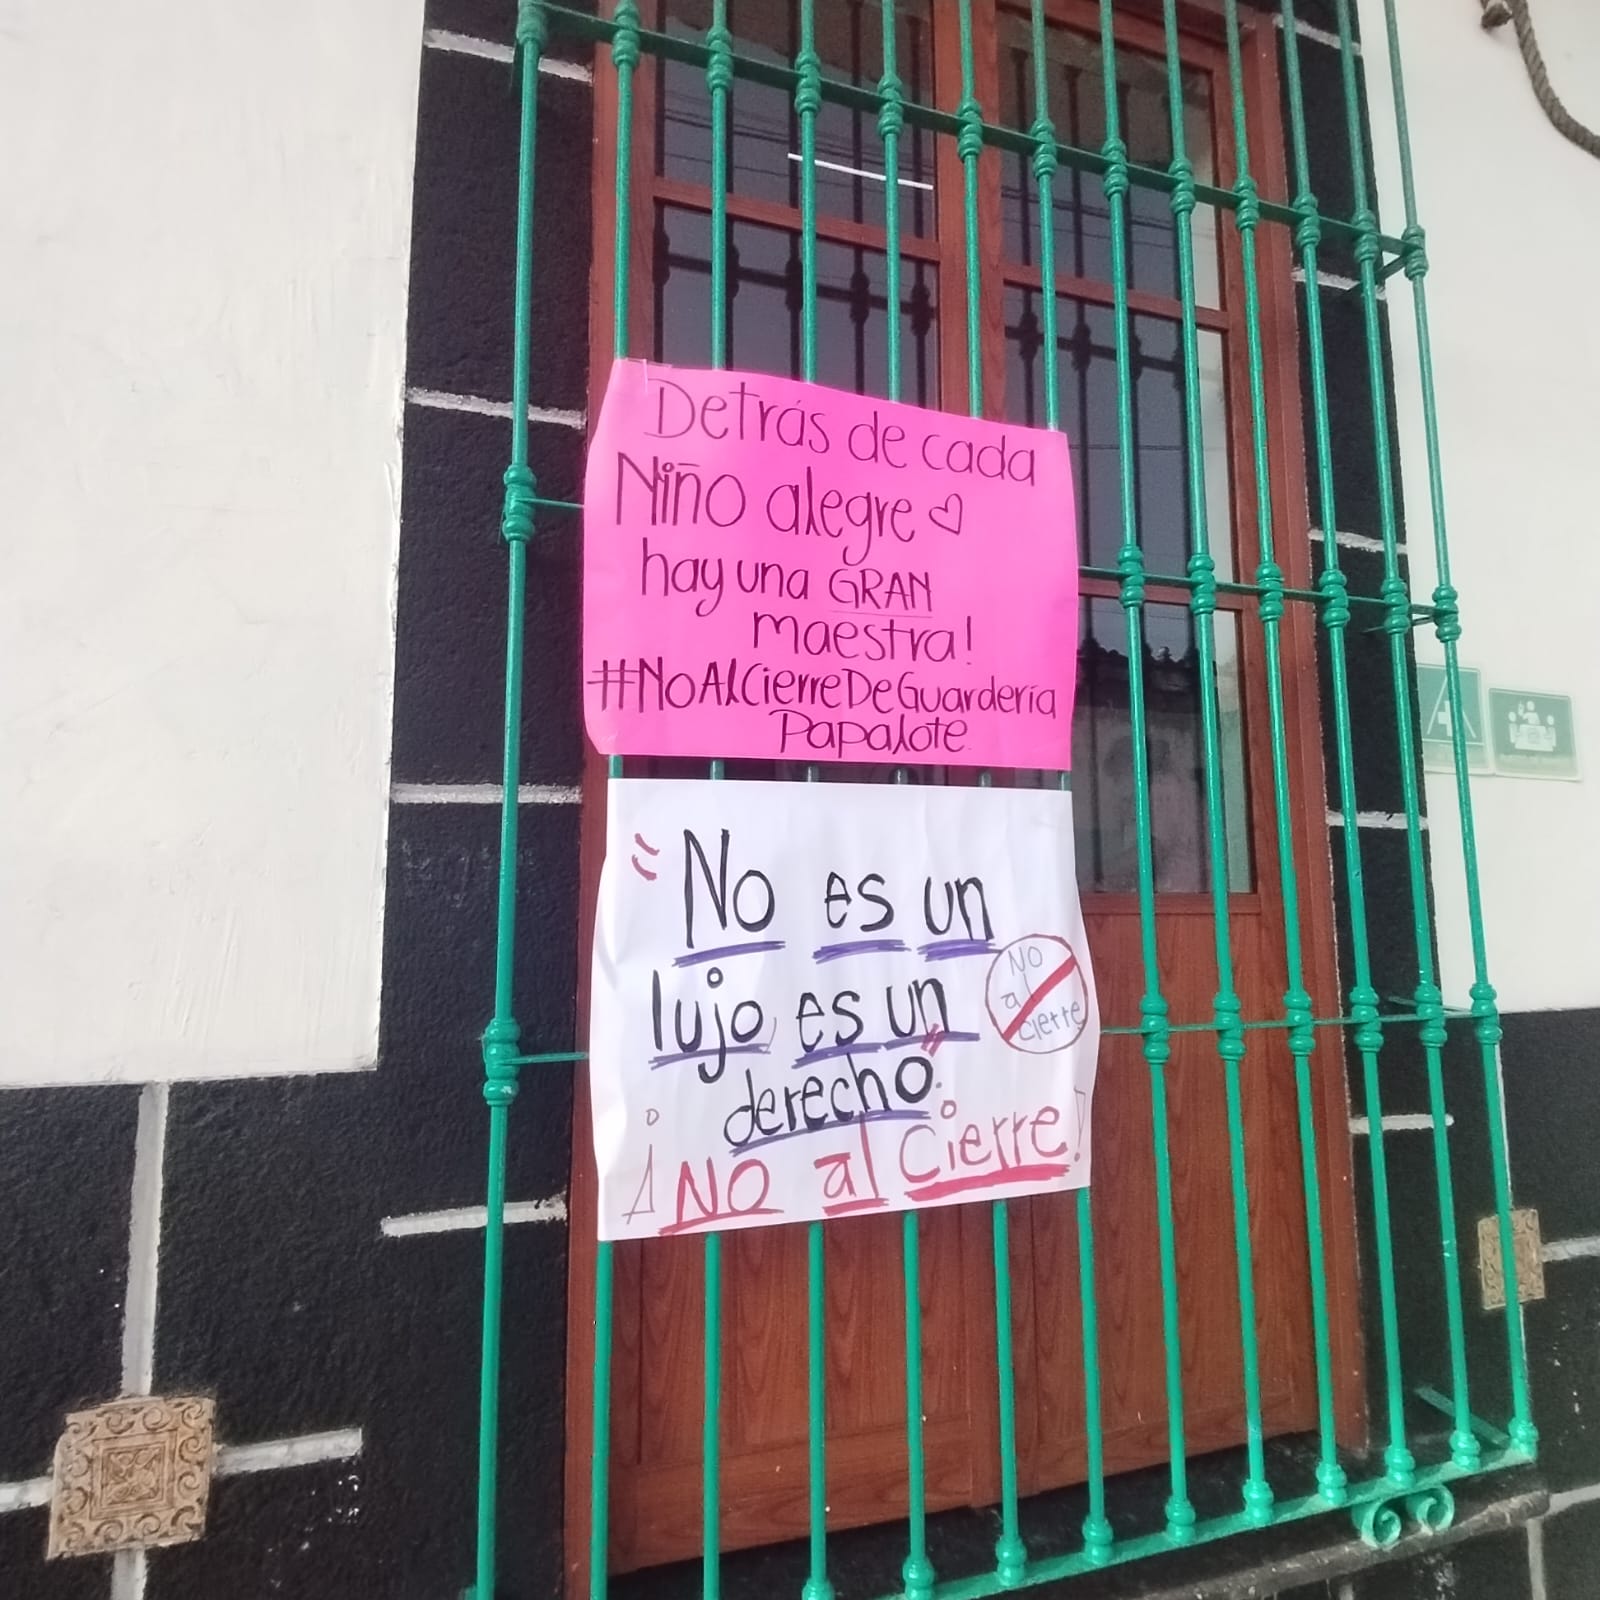 Detrás de cada
Niño alegre
hay una GRAN
maestra!
#NoAlCierreDeGuardería
Papalote
"No es un
lujo es un
derecho".
¡NO al cierre!
NO
al
cierre